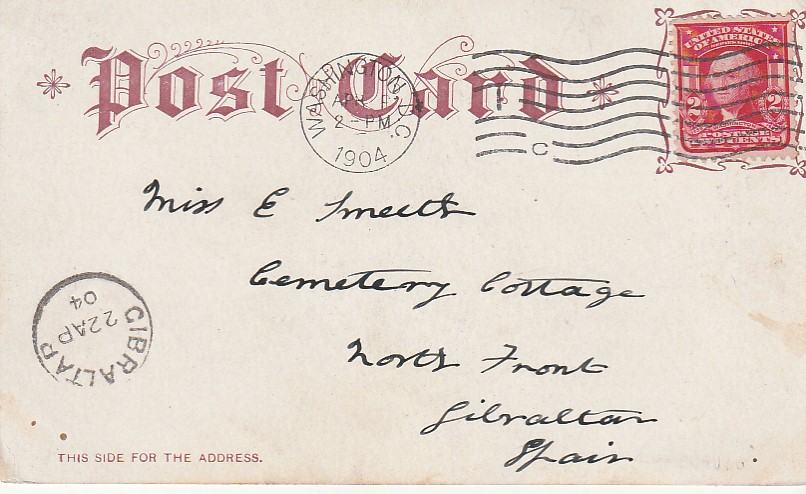 Post Card
UNITED STATES
OF AMERICA
2 2
POSTAGE
TWO CENTS
WASHINGTON, D.C.
APR
2 - PM
1904
C
Miss E Smeeth
Cemetery Cottage
North Front
Gibraltar
Spain
GIBRALTAR
22 AP
04
THIS SIDE FOR THE ADDRESS.